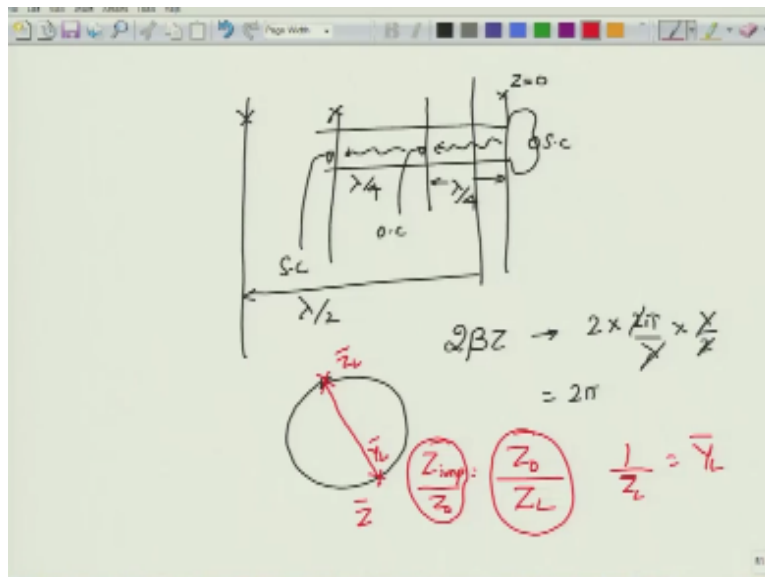 Page Width
Z=0
S.C
λ/4
λ/4
O.C
S.C
λ/2
2βz → 2 × 2π/λ × λ/2
= 2π
Z̄L
ȲL
Z̄
Zimp/Z0 = Z0/ZL
1/Z̄L = ȲL